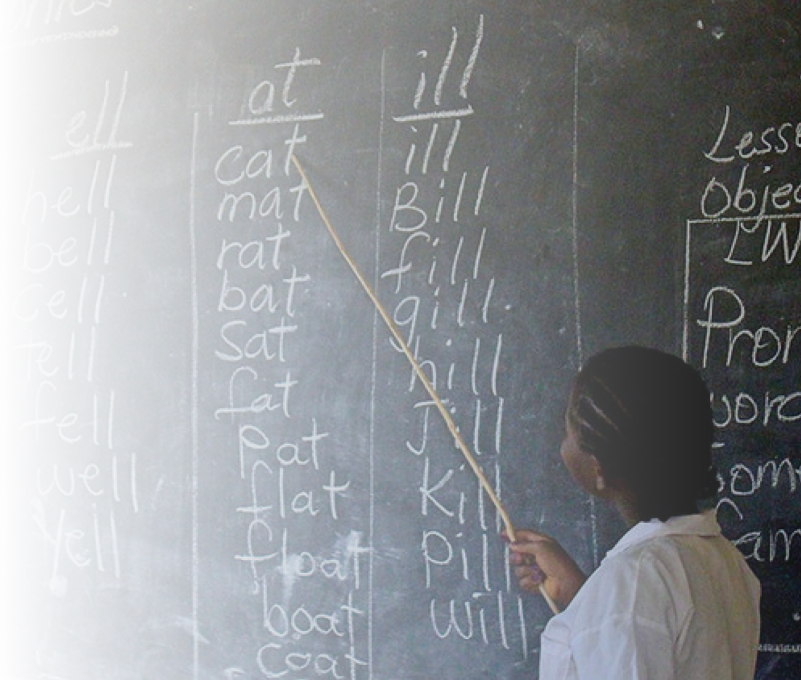 ell
hell
bell
cell
tell
fell
well
yell
at
cat
mat
rat
bat
sat
fat
Pat
flat
float
boat
coat
ill
ill
Bill
fill
gill
hill
Jill
Kill
Pill
will
Lesso
Objec
LW
Pron
word
Som